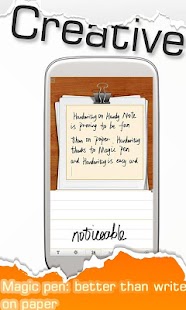 Creative
Handwriting on Handy Note
is proving to be fun
than on paper. Handwriting
thanks to Magic pen
and Handwriting is easy and
noticeable
Magic pen: better than write
on paper